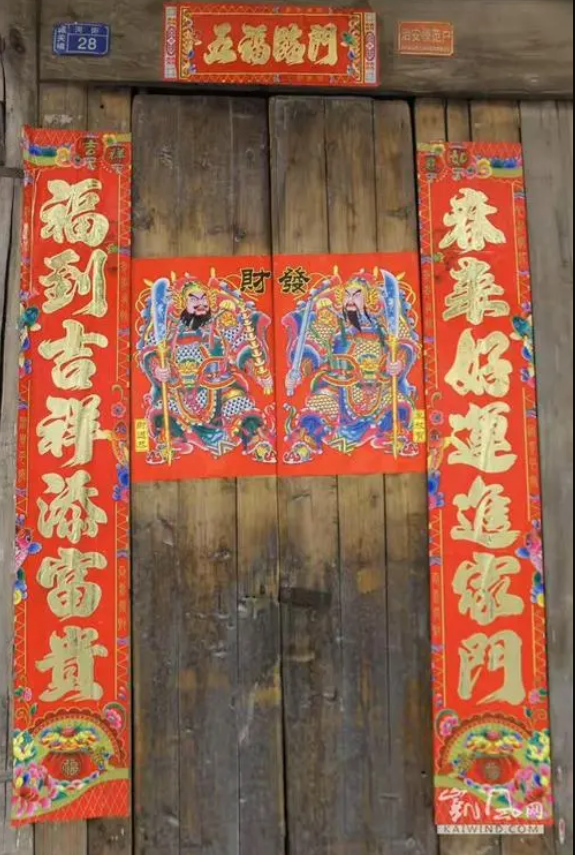 28
五福臨門
春來好運進家門
福到吉祥添富貴
財發
凱风网
KAIWIND.COM